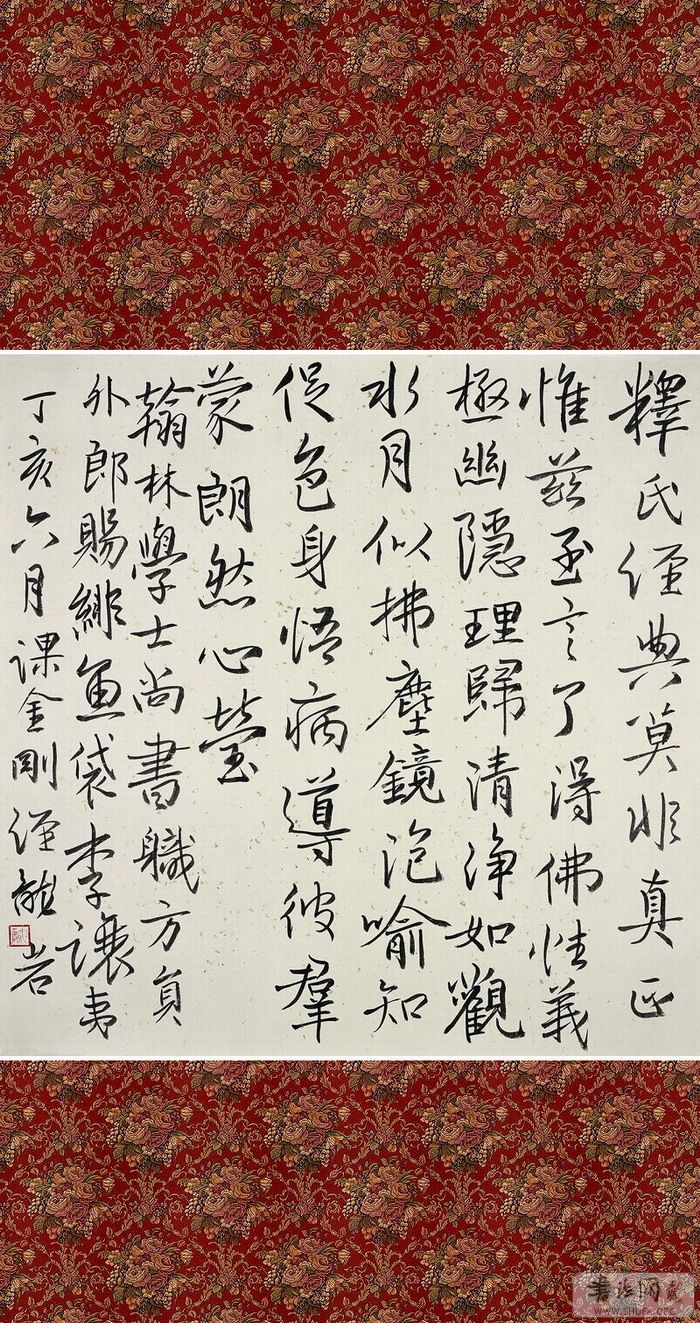 釋氏經典莫非真正
惟茲至言了得佛性義
極幽隱理歸清淨如觀
水月似拂塵鏡泡喻知
促色身悟病導彼羣
蒙朗然心瑩
翰林學士尚書職方員
外郎賜緋魚袋李讓夷
丁亥六月課金剛經龍岩
书法网
WWW.SHUFA.ORG